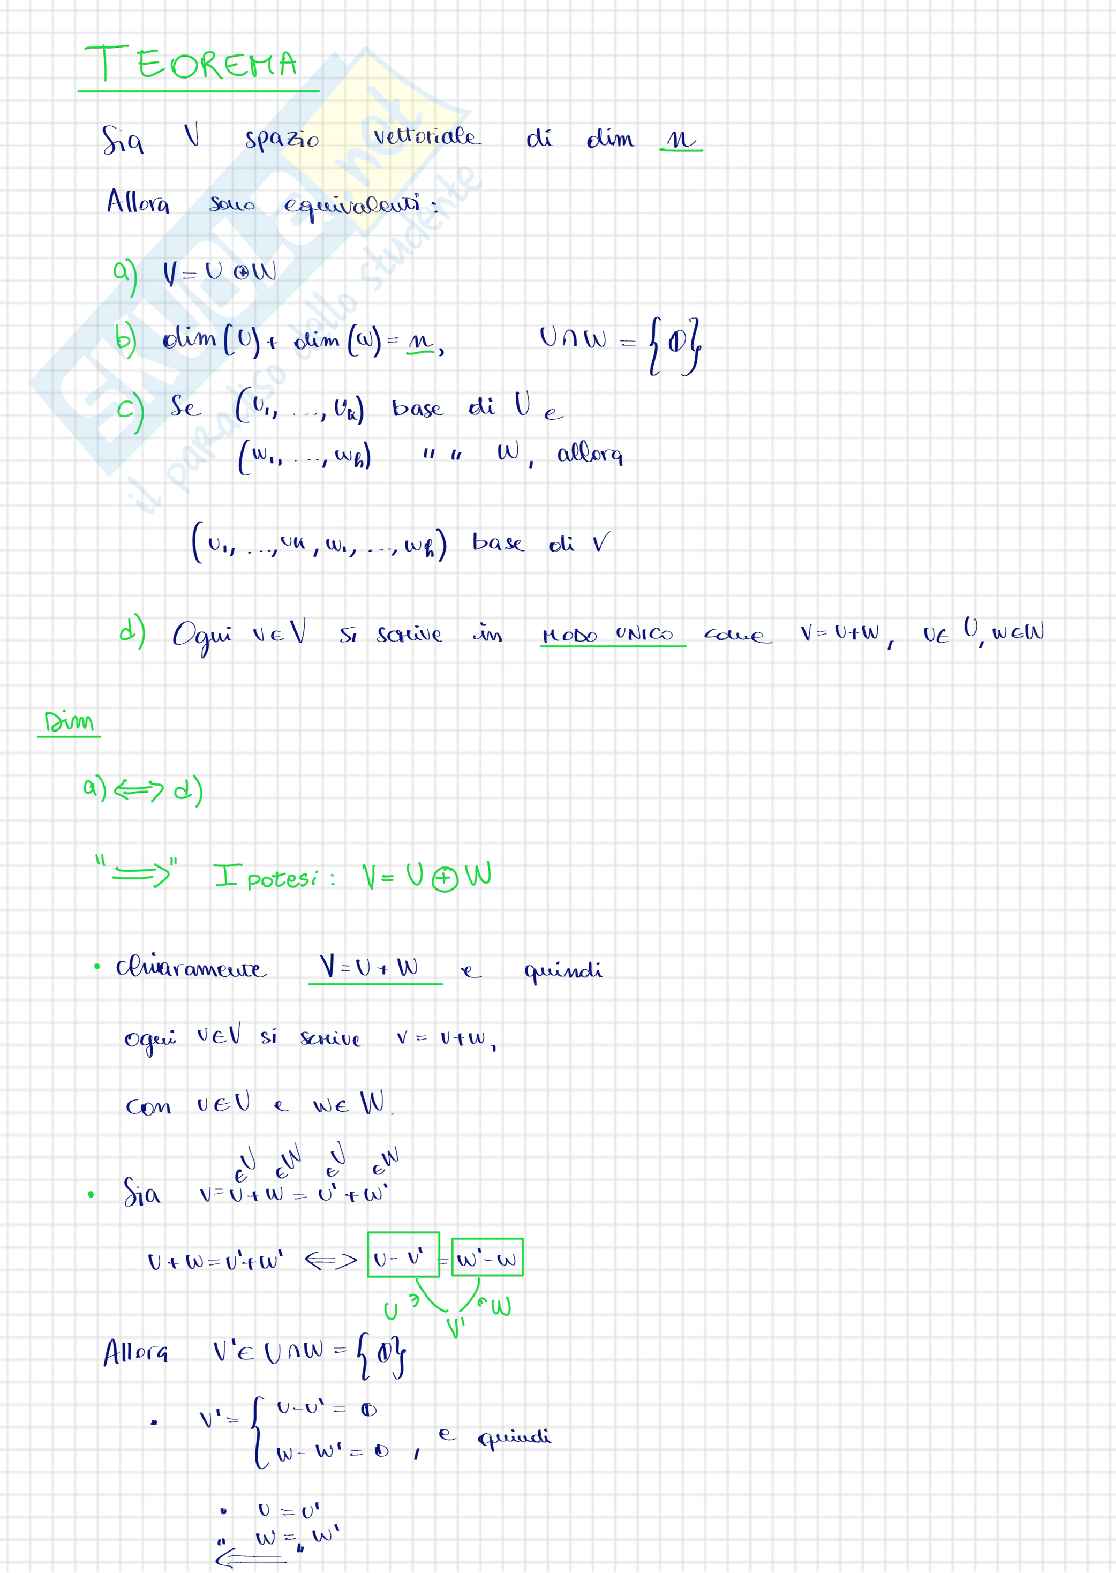 TEOREMA
Sia V spazio vettoriale di dim n
Allora sono equivalenti:
a) V = U ⊕ W
b) dim(U) + dim(W) = n, U ∩ W = {0}
c) Se (u₁, ..., uₖ) base di U e
(w₁, ..., wₕ) " " W, allora
(u₁, ..., uₖ, w₁, ..., wₕ) base di V
d) Ogni v ∈ V si scrive in MODO UNICO come v = u + w, u ∈ U, w ∈ W
Dim
a) ⟺ d)
"⟹" Ipotesi: V = U ⊕ W
• Chiaramente V = U + W e quindi
ogni v ∈ V si scrive v = u + w,
con u ∈ U e w ∈ W.
∈U ∈W ∈U ∈W
• Sia v = u + w = u' + w'
u + w = u' + w' ⟺ u - u' = w' - w
U ∋ v' ∈ W
Allora v' ∈ U ∩ W = {0}
• v' = { u - u' = 0
w - w' = 0, e quindi
• u = u'
• w = w'
"⟸"
SKUOLA.net
il paradiso dello studente